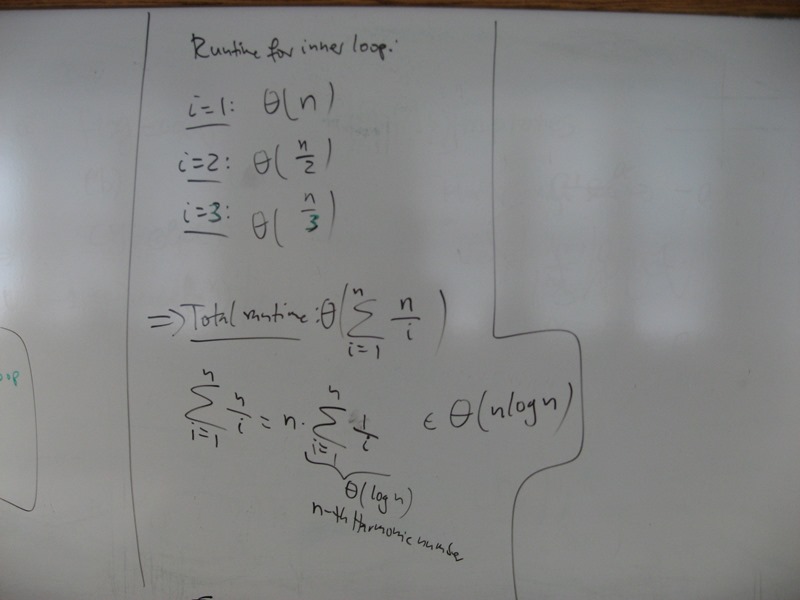 Runtime for inner loop:
i=1: θ(n)
i=2: θ(n/2)
i=3: θ(n/3)
⇒ Total runtime: θ(∑_{i=1}^{n} n/i)
∑_{i=1}^{n} n/i = n · ∑_{i=1}^{n} 1/i ∈ θ(n log n)
θ(log n)
n-th Harmonic number
oop